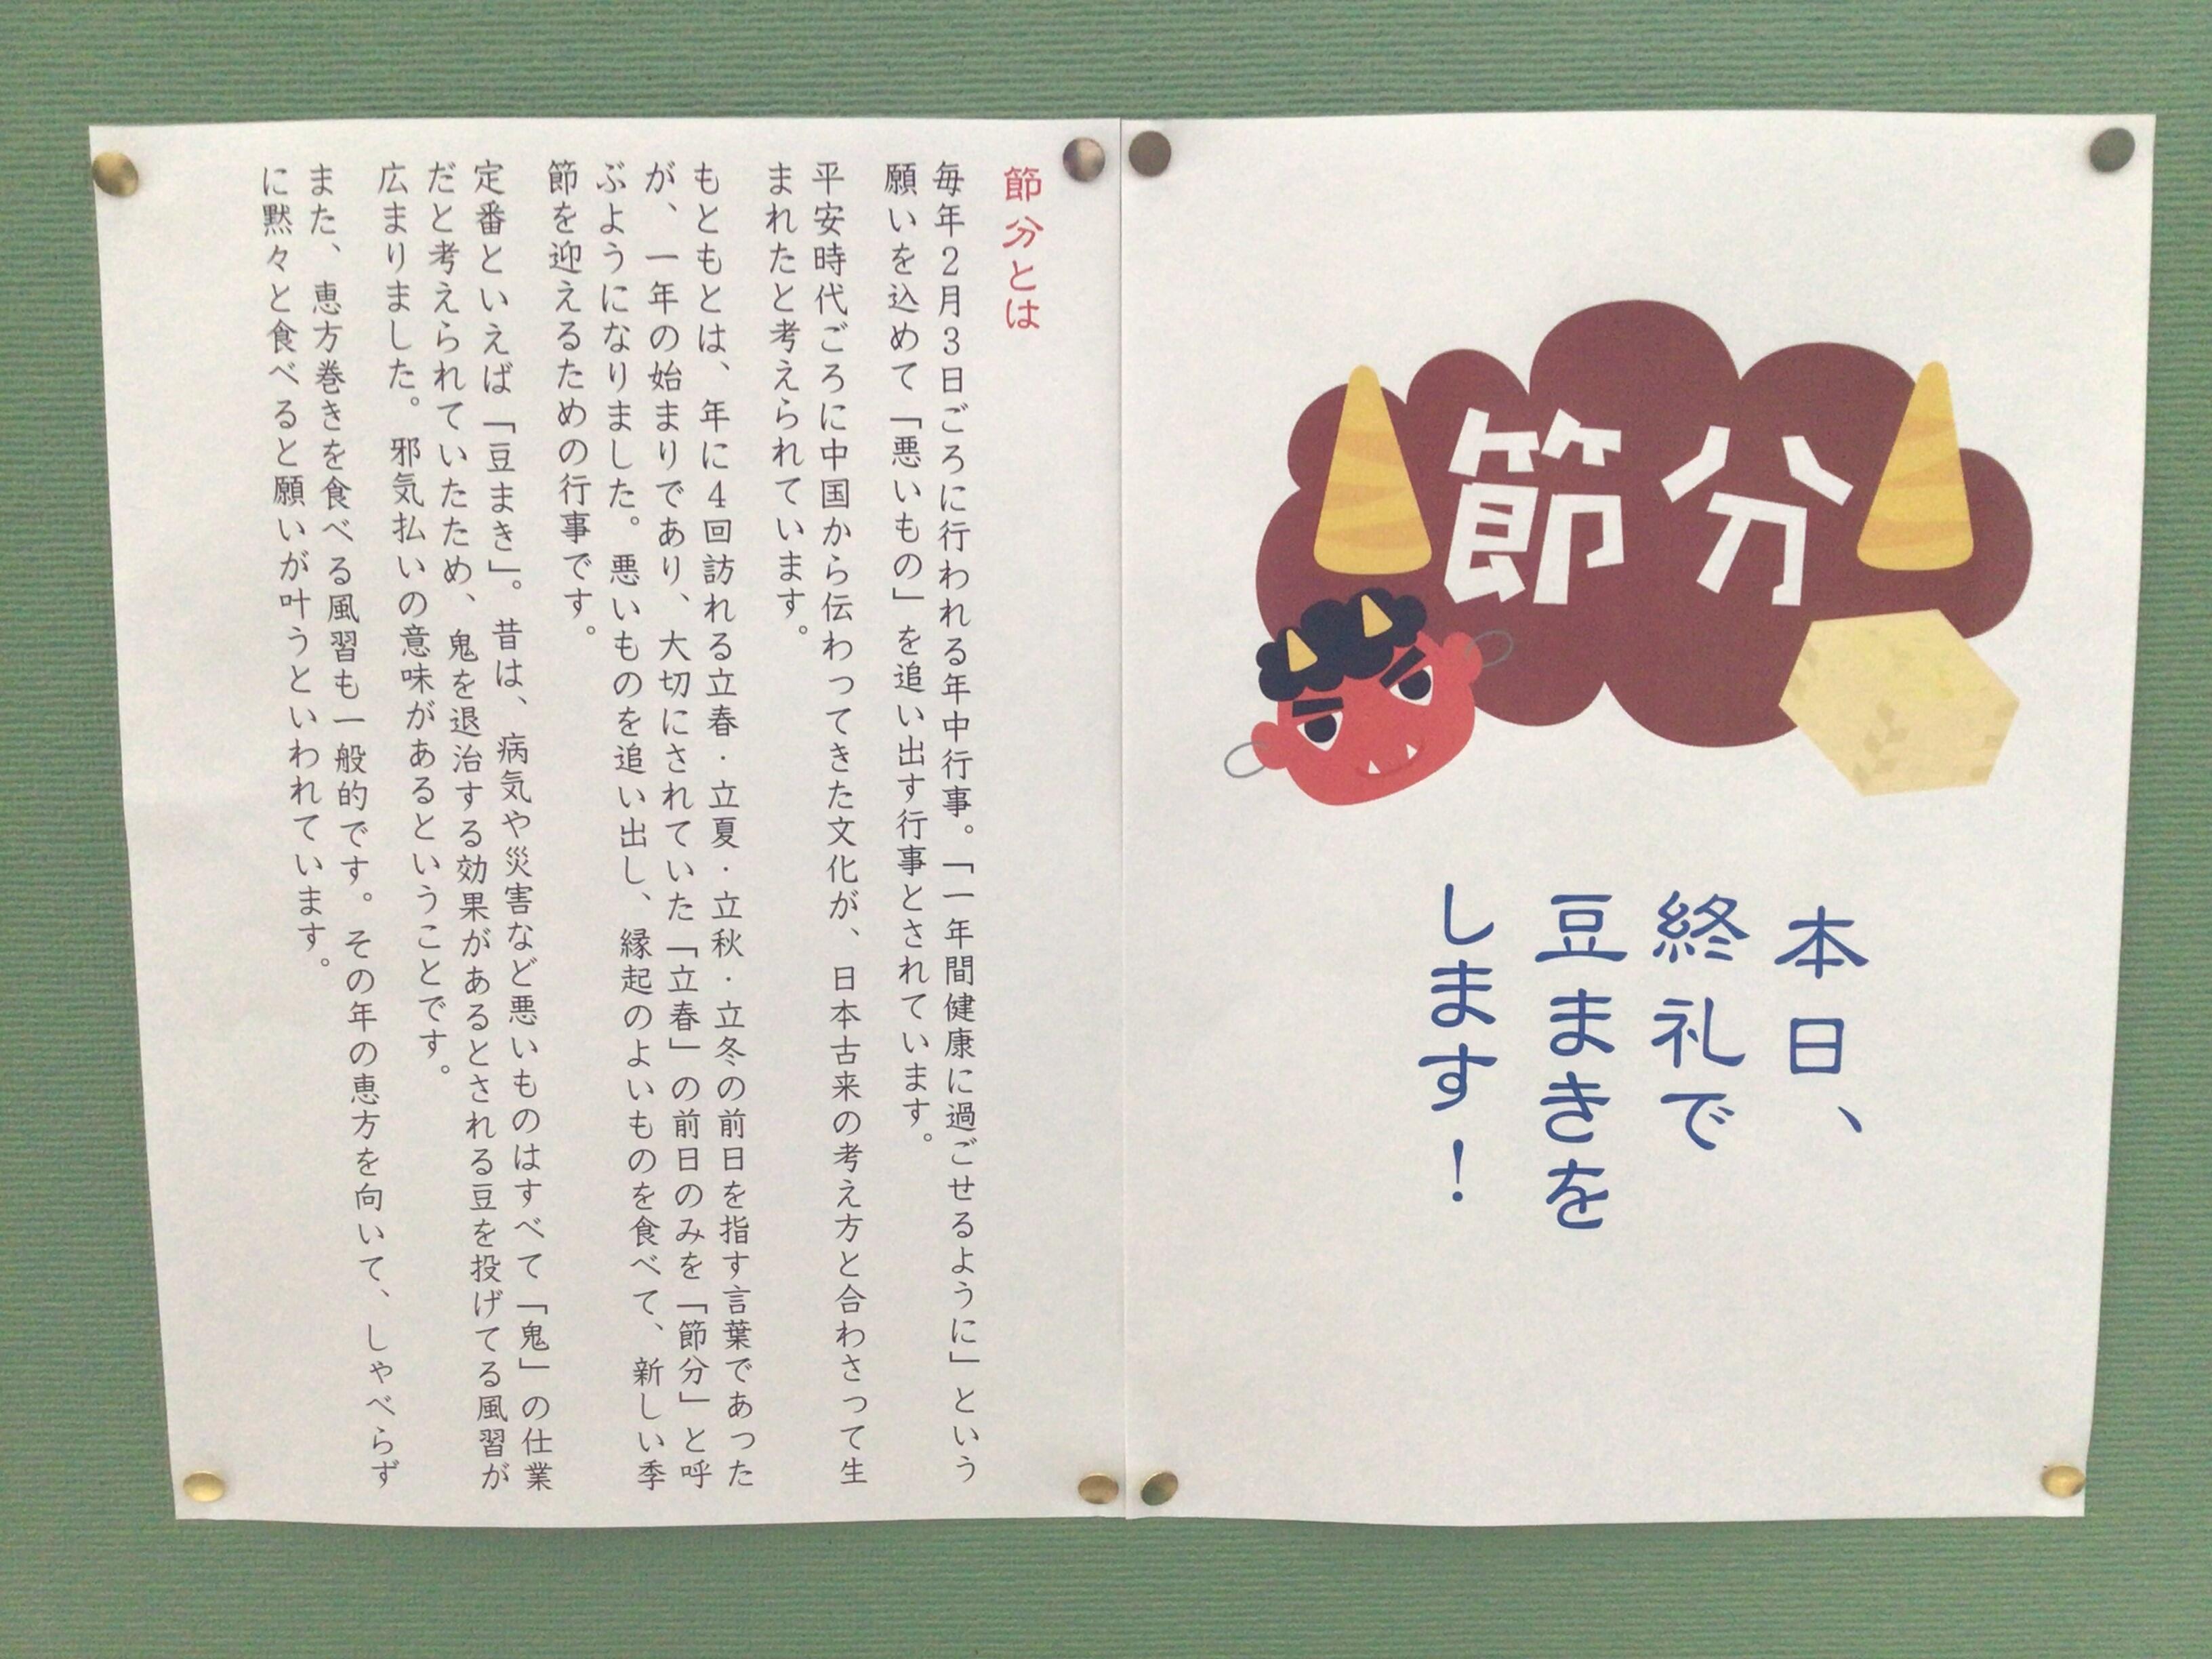 節分
本日、
終礼で
豆まきを
します！
節分とは
毎年2月3日ごろに行われる年中行事。「一年間健康に過ごせるように」という
願いを込めて「悪いもの」を追い出す行事とされています。
平安時代ごろに中国から伝わってきた文化が、日本古来の考え方と合わさって生
まれたと考えられています。
もともとは、年に4回訪れる立春・立夏・立秋・立冬の前日を指す言葉であった
が、一年の始まりであり、大切にされていた「立春」の前日のみを「節分」と呼
ぶようになりました。悪いものを追い出し、縁起のよいものを食べて、新しい季
節を迎えるための行事です。
定番といえば「豆まき」。昔は、病気や災害など悪いものはすべて「鬼」の仕業
だと考えられていたため、鬼を退治する効果があるとされる豆を投げてる風習が
広まりました。邪気払いの意味があるということです。
また、恵方巻きを食べる風習も一般的です。その年の恵方を向いて、しゃべらず
に黙々と食べると願いが叶うといわれています。